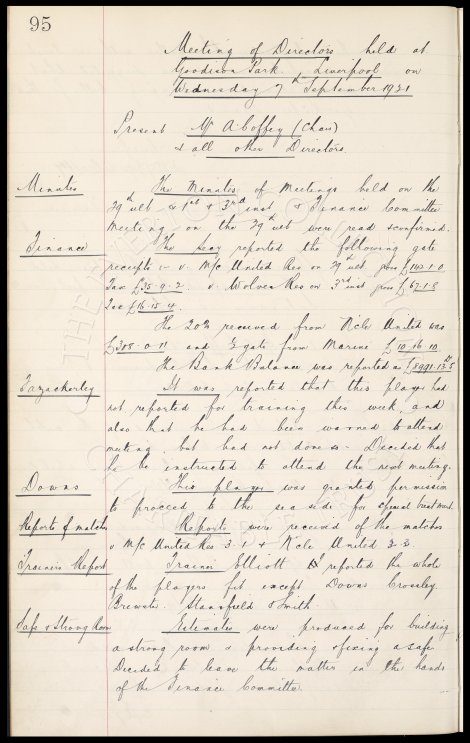 95
Meeting of Directors held at
Goodison Park. Liverpool on
Wednesday 7th September 1921
Present Mr A. Coffey (Chair)
& all other Directors
Minutes
The Minutes of Meetings held on the
29th ult & 1st & 3rd inst & Finance Committee
Meeting on the 29th ult were read & confirmed.
Finance
The Secy reported the following gate
receipts :- v. M/c United Res on 29th ult. gross £142.1.0
Tax £35.9.2. v. Wolves Res on 3rd inst gross £67.1.8
Tax £16.15.4.
The 20% received from N'cle United was
£308.0.11 and ½ gate from Marine £10.16.10
The Bank Balance was reported as £8991.13.5
Fazackerley
It was reported that this player had
not reported for training this week, and
also that he had been warned to attend
meeting but had not done so - Decided that
he be instructed to attend the next meeting.
Downs
This player was granted permission
to proceed to the sea side for special treatment.
Reports of matches
Reports were received of the matches
v M/c United Res 3.1 & N'cle United 3.3.
Trainers Report
Trainer Elliott reported the whole
of the players fit except Downs Crossley.
Brewster. Stansfield & Smith.
Safe & Strong Room
Estimates were produced for building
a strong room & providing & fixing a safe.
Decided to leave the matter in the hands
of the Finance Committee.